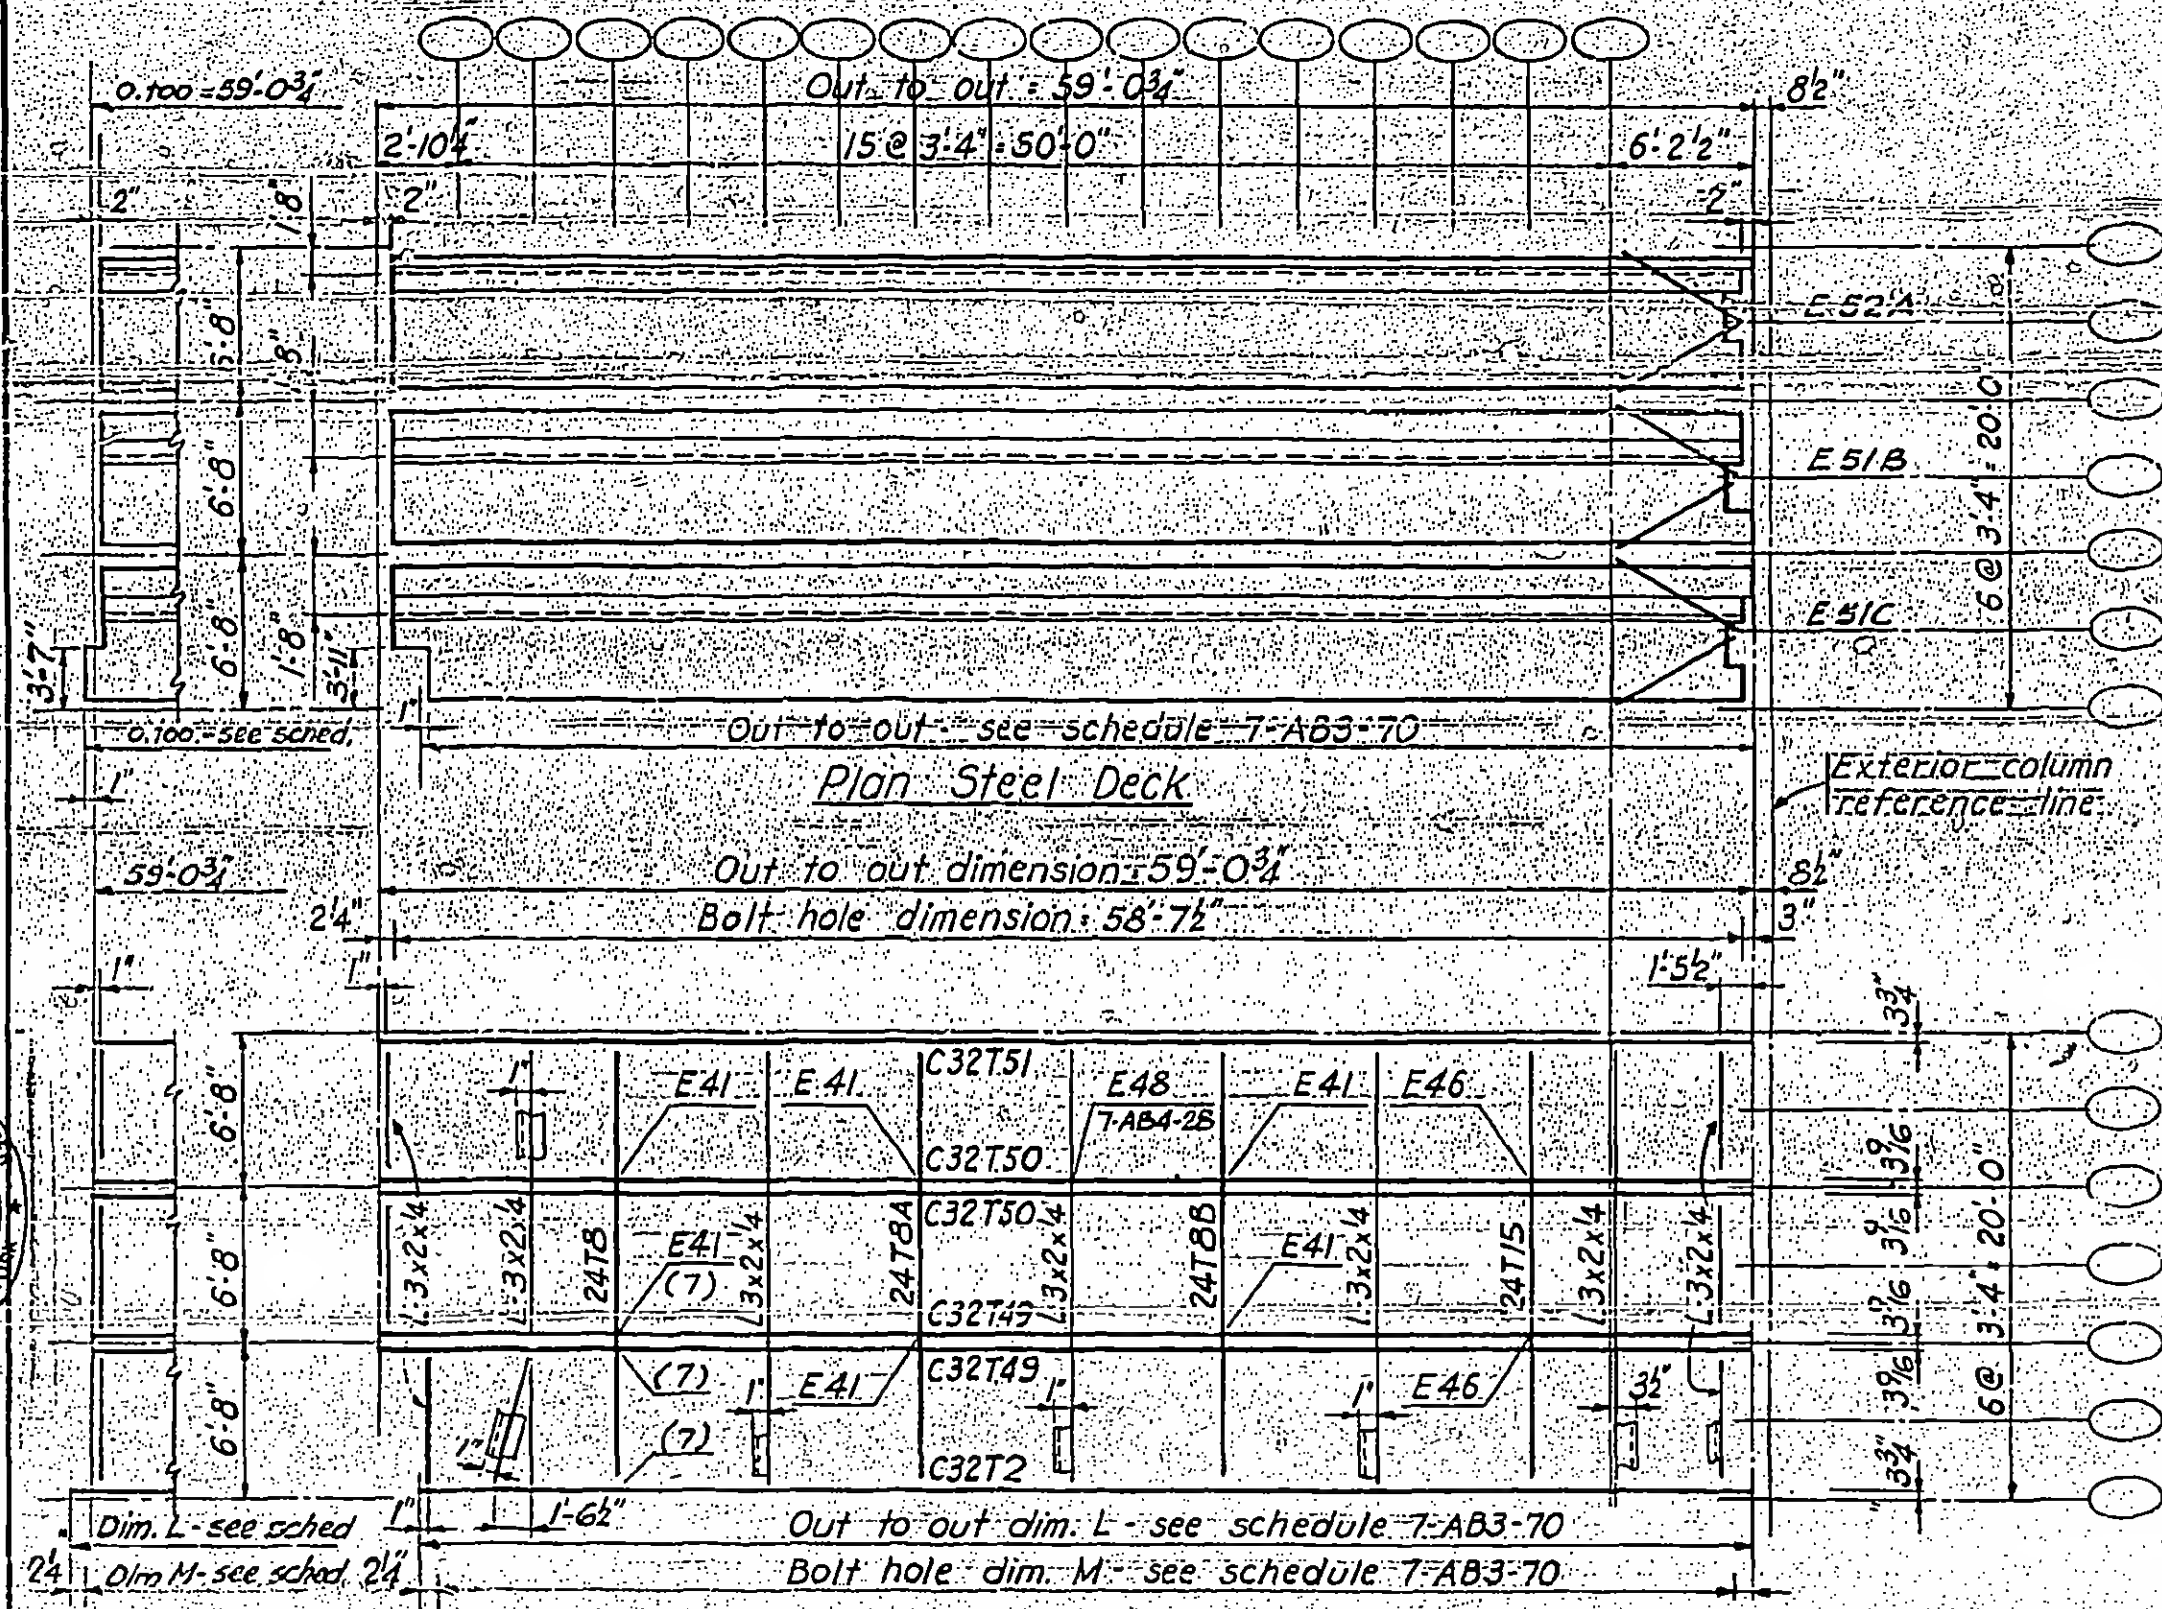 O.to O. = 59'-0¾"
Out to out = 59'-0¾"
8½"
2'-10¼"
15 @ 3'-4" = 50'-0"
6'-2½"
2"
1'-8"
2"
2"
E 52 A
6'-8"
1'-8"
E 51 B
6'-8"
6 @ 3'-4" = 20'-0
E 51 C
6'-8"
1'-8"
3'-7"
3'-11"
1"
O. to O. - see sched.
Out to out - see schedule 7-AB3-70
1"
Plan Steel Deck
Exterior column
reference line
59'-0¾"
Out to out dimension = 59'-0¾"
8½"
2¼"
Bolt hole dimension = 58'-7½"
3"
1"
1"
1'-5½"
3¾"
C32T51
1"
E41
E41
E48
7-AB4-2B
E41
E46
6'-8"
C32T50
3 9/16
C32T50
L-3x2x¼
L-3x2x¼
24T8
E41
(7)
L-3x2x¼
24T8A
L-3x2x¼
24T8B
E41
L-3x2x¼
24T15
L-3x2x¼
L-3x2x¼
6'-8"
3 9/16
C32T49
3 9/16
6 @ 3'-4" = 20'-0"
C32T49
(7)
1"
E41
1"
1"
E46
3½"
3 9/16
6'-8"
1"
(7)
C32T2
3¾"
1"
1'-6½"
Dim. L - see sched
Out to out dim. L - see schedule 7-AB3-70
2¼
Dim M - see sched.
2¼"
Bolt hole dim. M - see schedule 7-AB3-70